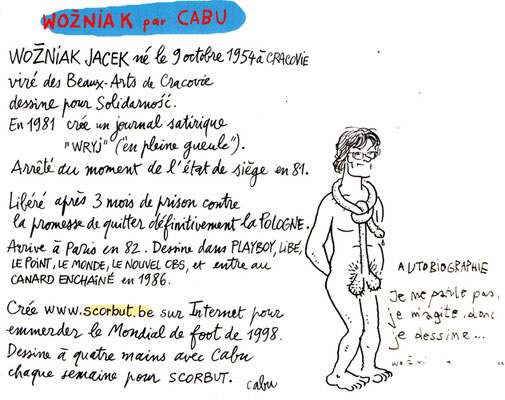 WOŹNIAK par CABU
WOŹNIAK JACEK né le 9 octobre 1954 à CRACOVIE
viré des Beaux-Arts de Cracovie
dessine pour Solidarność.
En 1981 crée un journal satirique
"WRYJ" ("en pleine gueule").
Arrêté au moment de l'état de siège en 81.
Libéré après 3 mois de prison contre
la promesse de quitter définitivement la POLOGNE.
Arrive à Paris en 82. Dessine dans PLAYBOY, LIBÉ,
LE POINT, LE MONDE, LE NOUVEL OBS, et entre au
CANARD ENCHAINÉ en 1986.
Crée www.scorbut.be sur Internet pour
emmerder le Mondial de foot de 1998.
Dessine à quatre mains avec Cabu
chaque semaine pour SCORBUT.
cabu
AUTOBIOGRAPHIE
Je ne parle pas,
je m'agite, donc
je dessine...